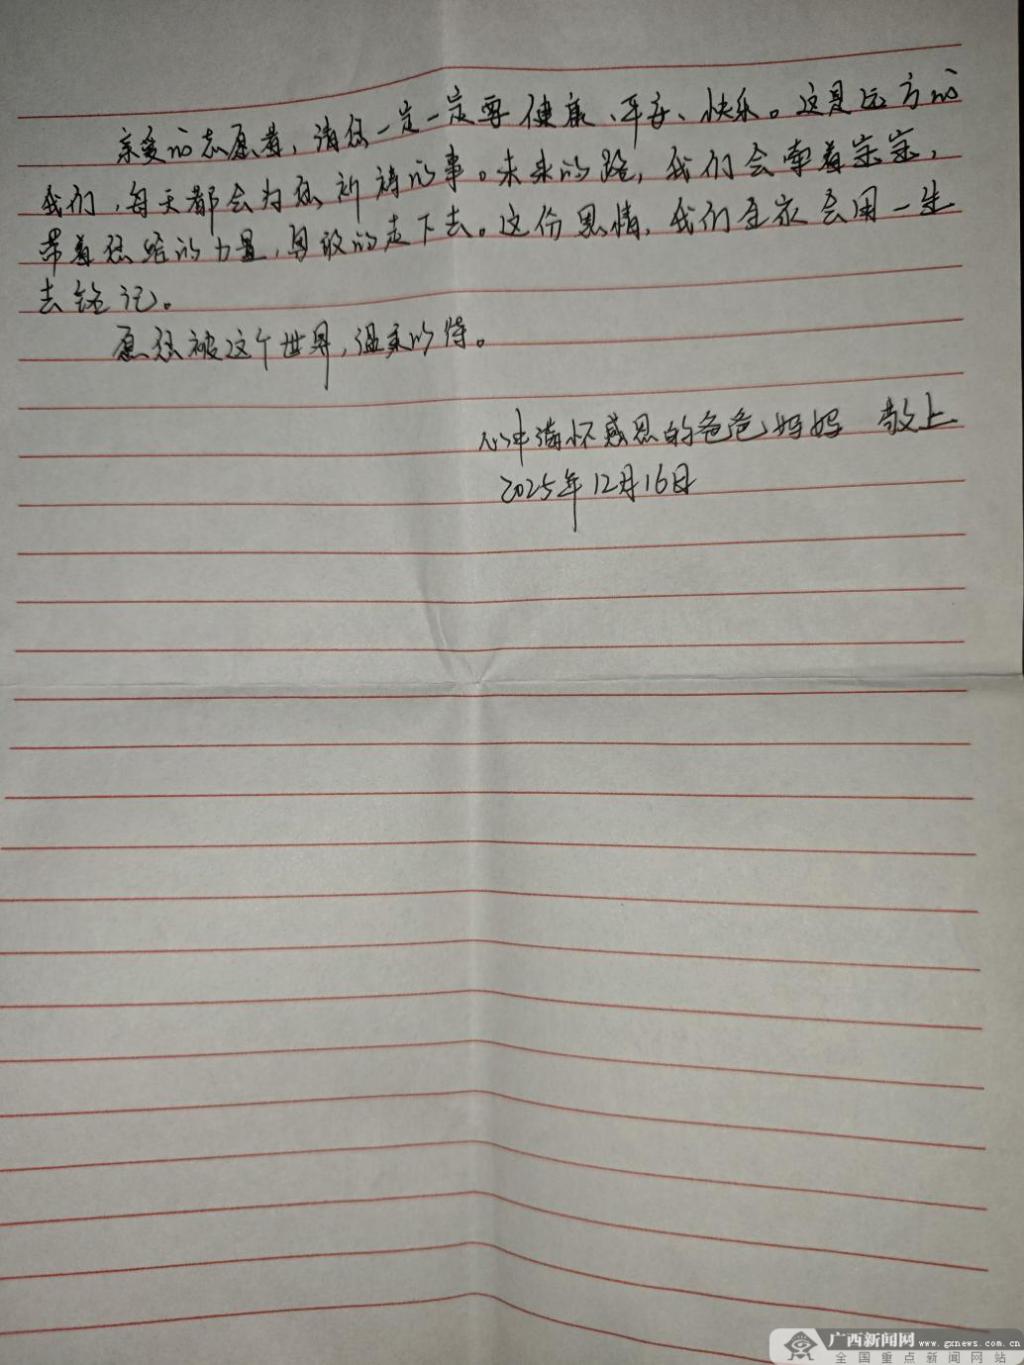 亲爱的志愿者，请您一定一定要健康、平安、快乐。这是远方的
我们，每天都会为您祈祷的事。未来的路，我们会牵着宗宗，
带着您给的力量，勇敢的走下去。这份恩情，我们全家会用一生
去铭记。
愿您被这个世界，温柔以待。
心中满怀感恩的爸爸妈妈 敬上
2025年12月16日
广西新闻网 www.gxnews.com.cn
全国重点新闻网站